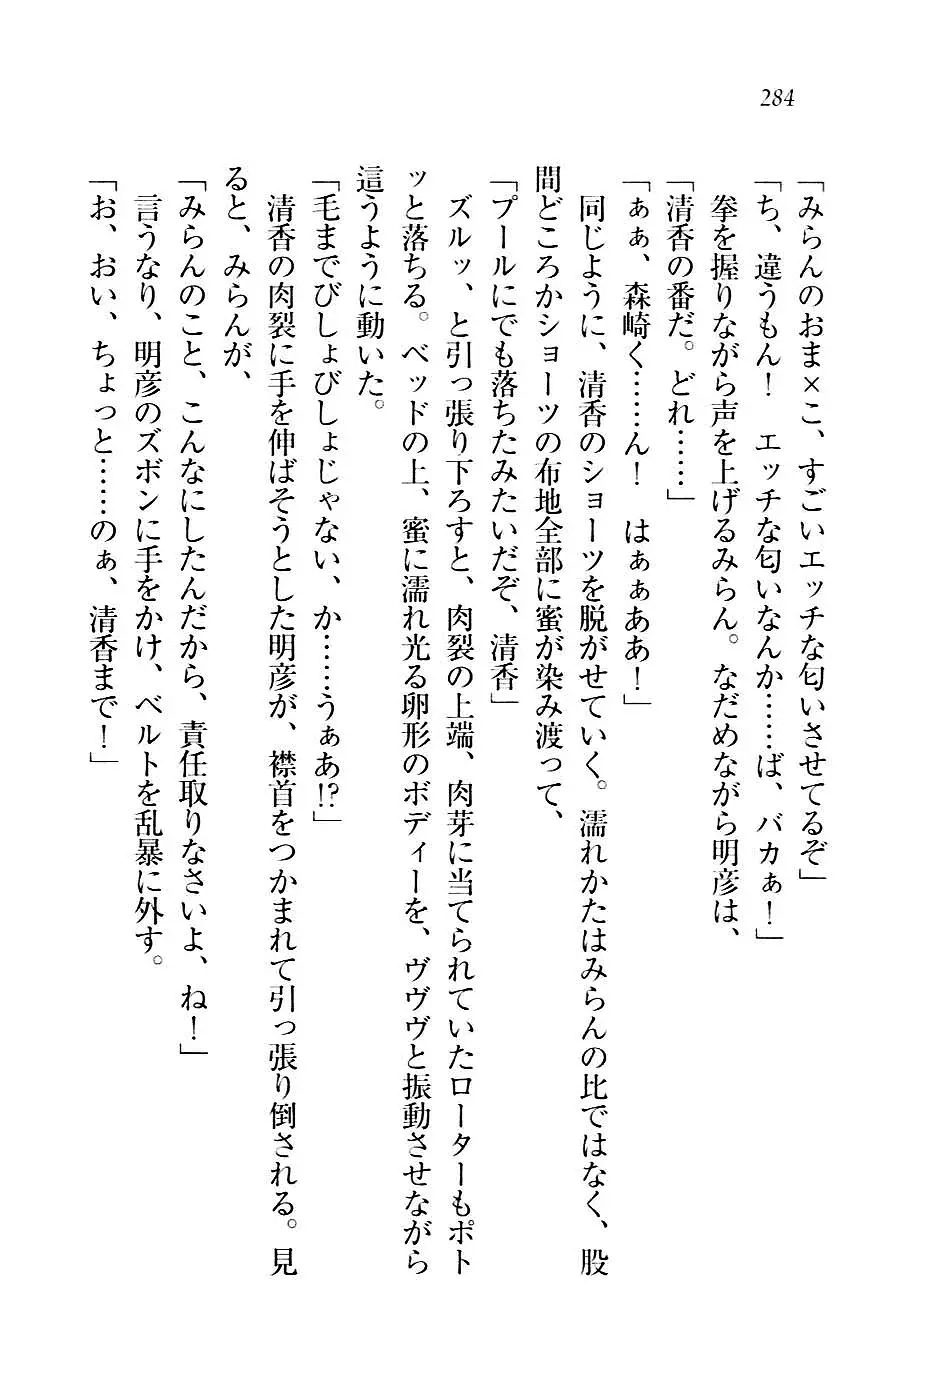 284
「みらんのおま×こ、すごいエッチな匂いさせてるぞ」
「ち、違うもん！　エッチな匂いなんか……ば、バカぁ！」
　拳を握りながら声を上げるみらん。なだめながら明彦は、
「清香の番だ。どれ……」
「ぁぁ、森崎く……ん！　はぁぁああ！」
　同じように、清香のショーツを脱がせていく。濡れかたはみらんの比ではなく、股
間どころかショーツの布地全部に蜜が染み渡って、
「プールにでも落ちたみたいだぞ、清香」
　ズルッ、と引っ張り下ろすと、肉裂の上端、肉芽に当てられていたローターもポト
ッと落ちる。ベッドの上、蜜に濡れ光る卵形のボディーを、ヴヴヴと振動させながら
這うように動いた。
「毛までびしょびしょじゃない、か……うぁあ!?」
　清香の肉裂に手を伸ばそうとした明彦が、襟首をつかまれて引っ張り倒される。見
ると、みらんが、
「みらんのこと、こんなにしたんだから、責任取りなさいよ、ね！」
　言うなり、明彦のズボンに手をかけ、ベルトを乱暴に外す。
「お、おい、ちょっと……のぁ、清香まで！」